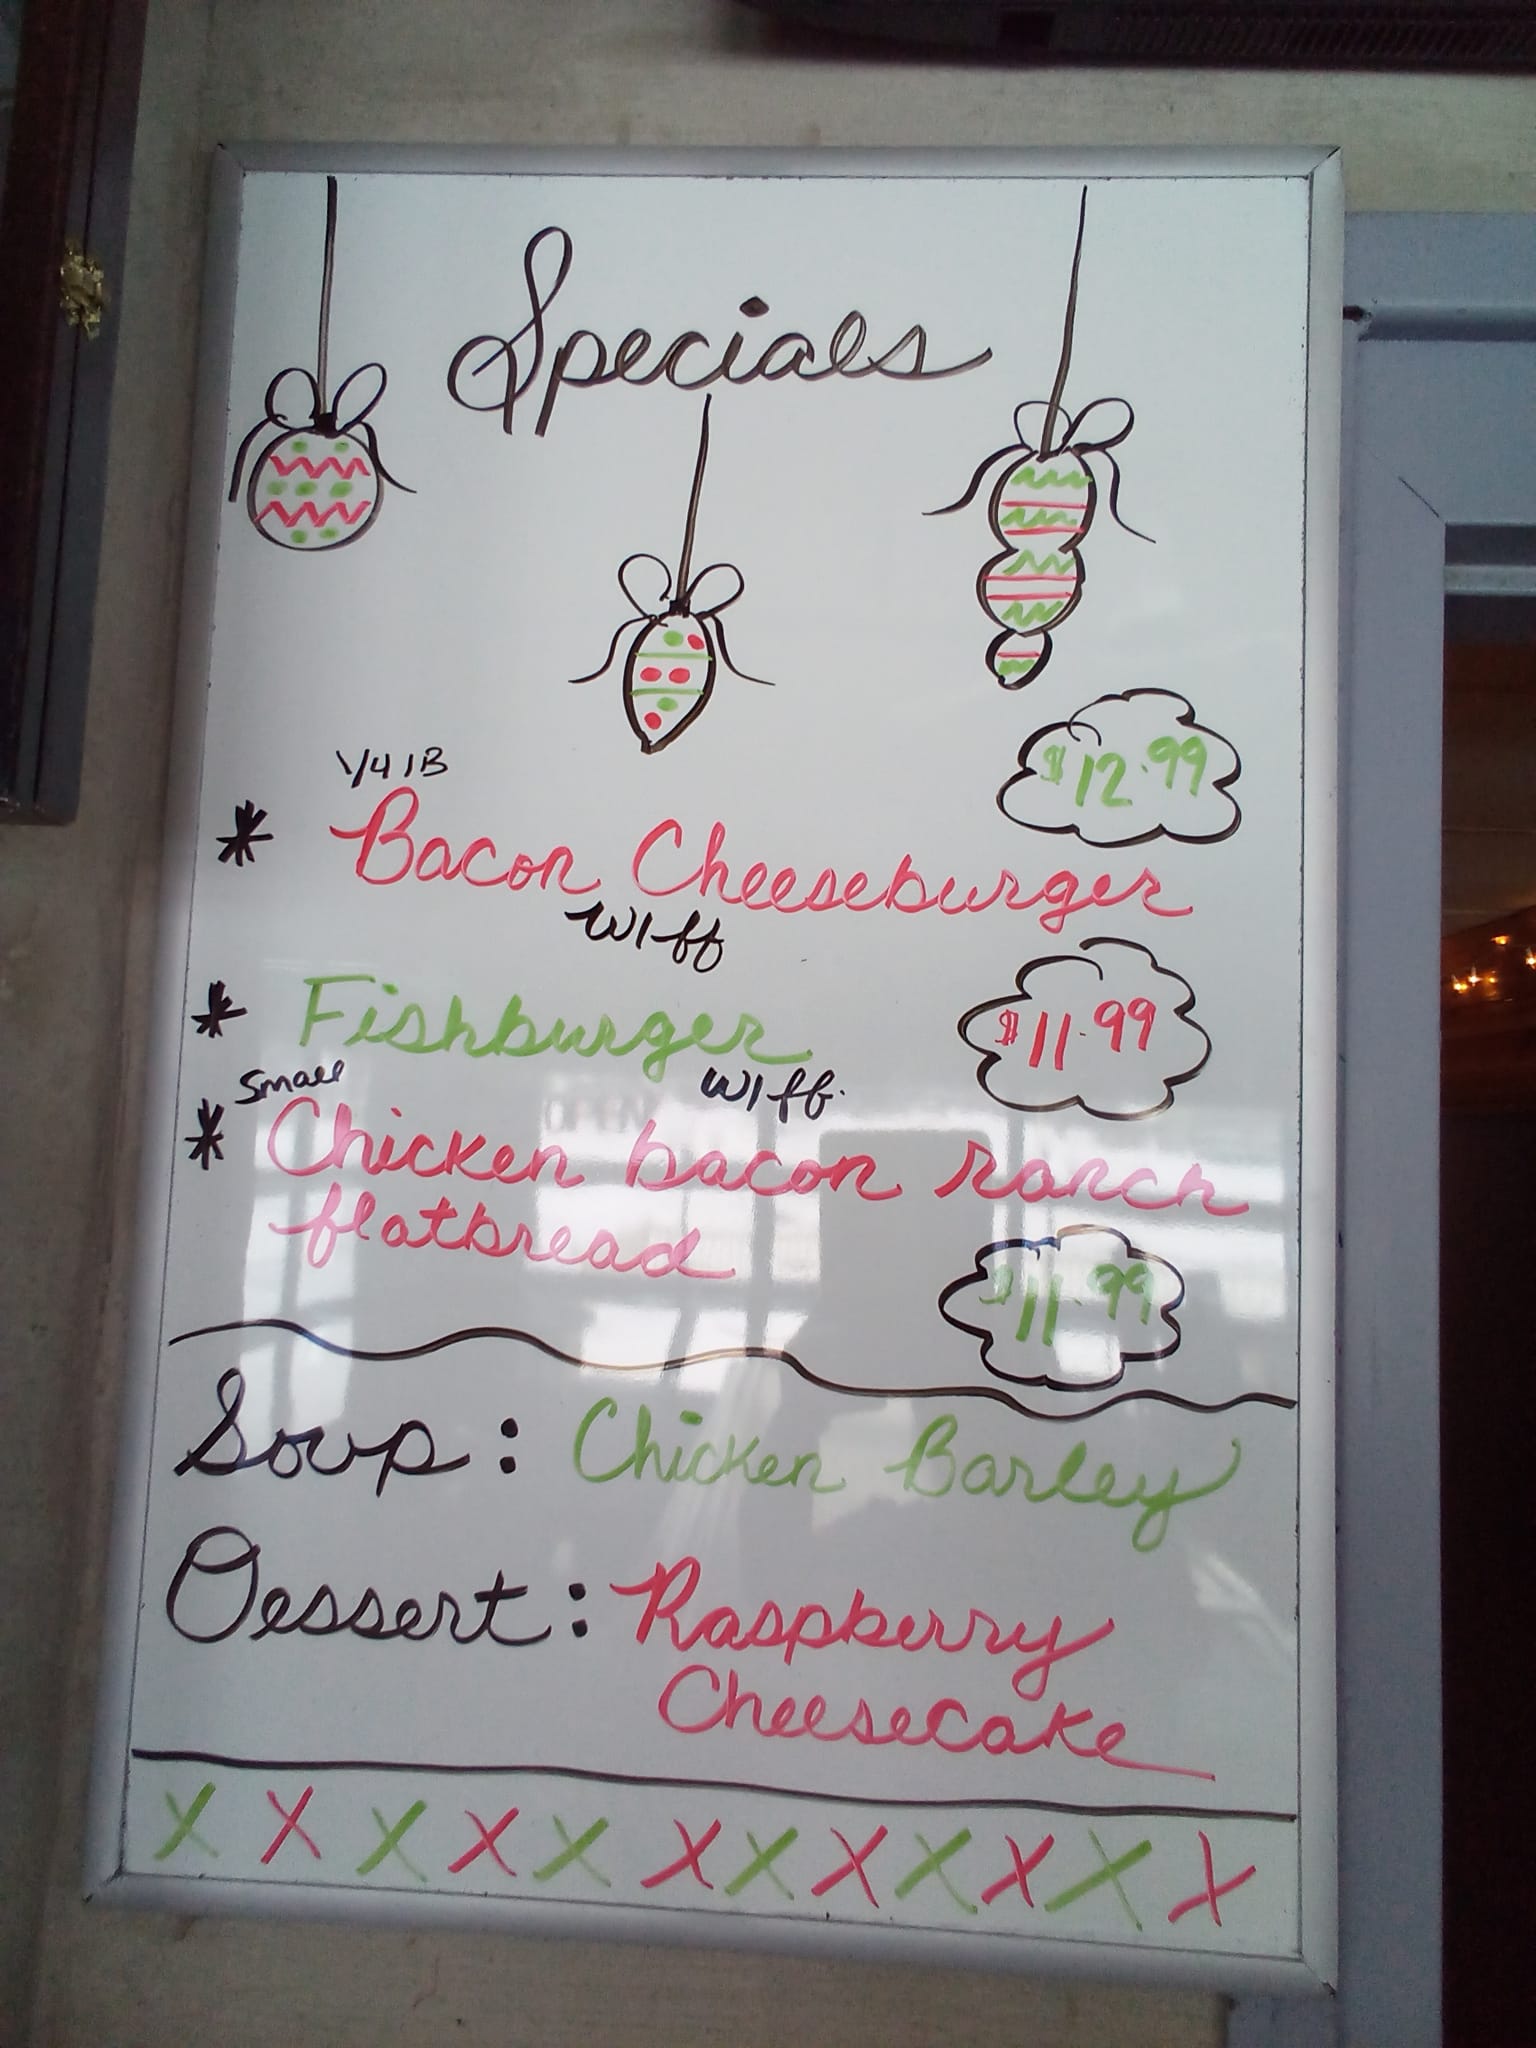 Specials
1/4 lB
$12.99
* Bacon Cheeseburger
W/ff
* Fishburger
$11.99
W/ff.
Small
* Chicken bacon ranch
flatbread
$11.99
Soup: Chicken Barley
Dessert: Raspberry
Cheesecake
X X X X X X X X X X X X